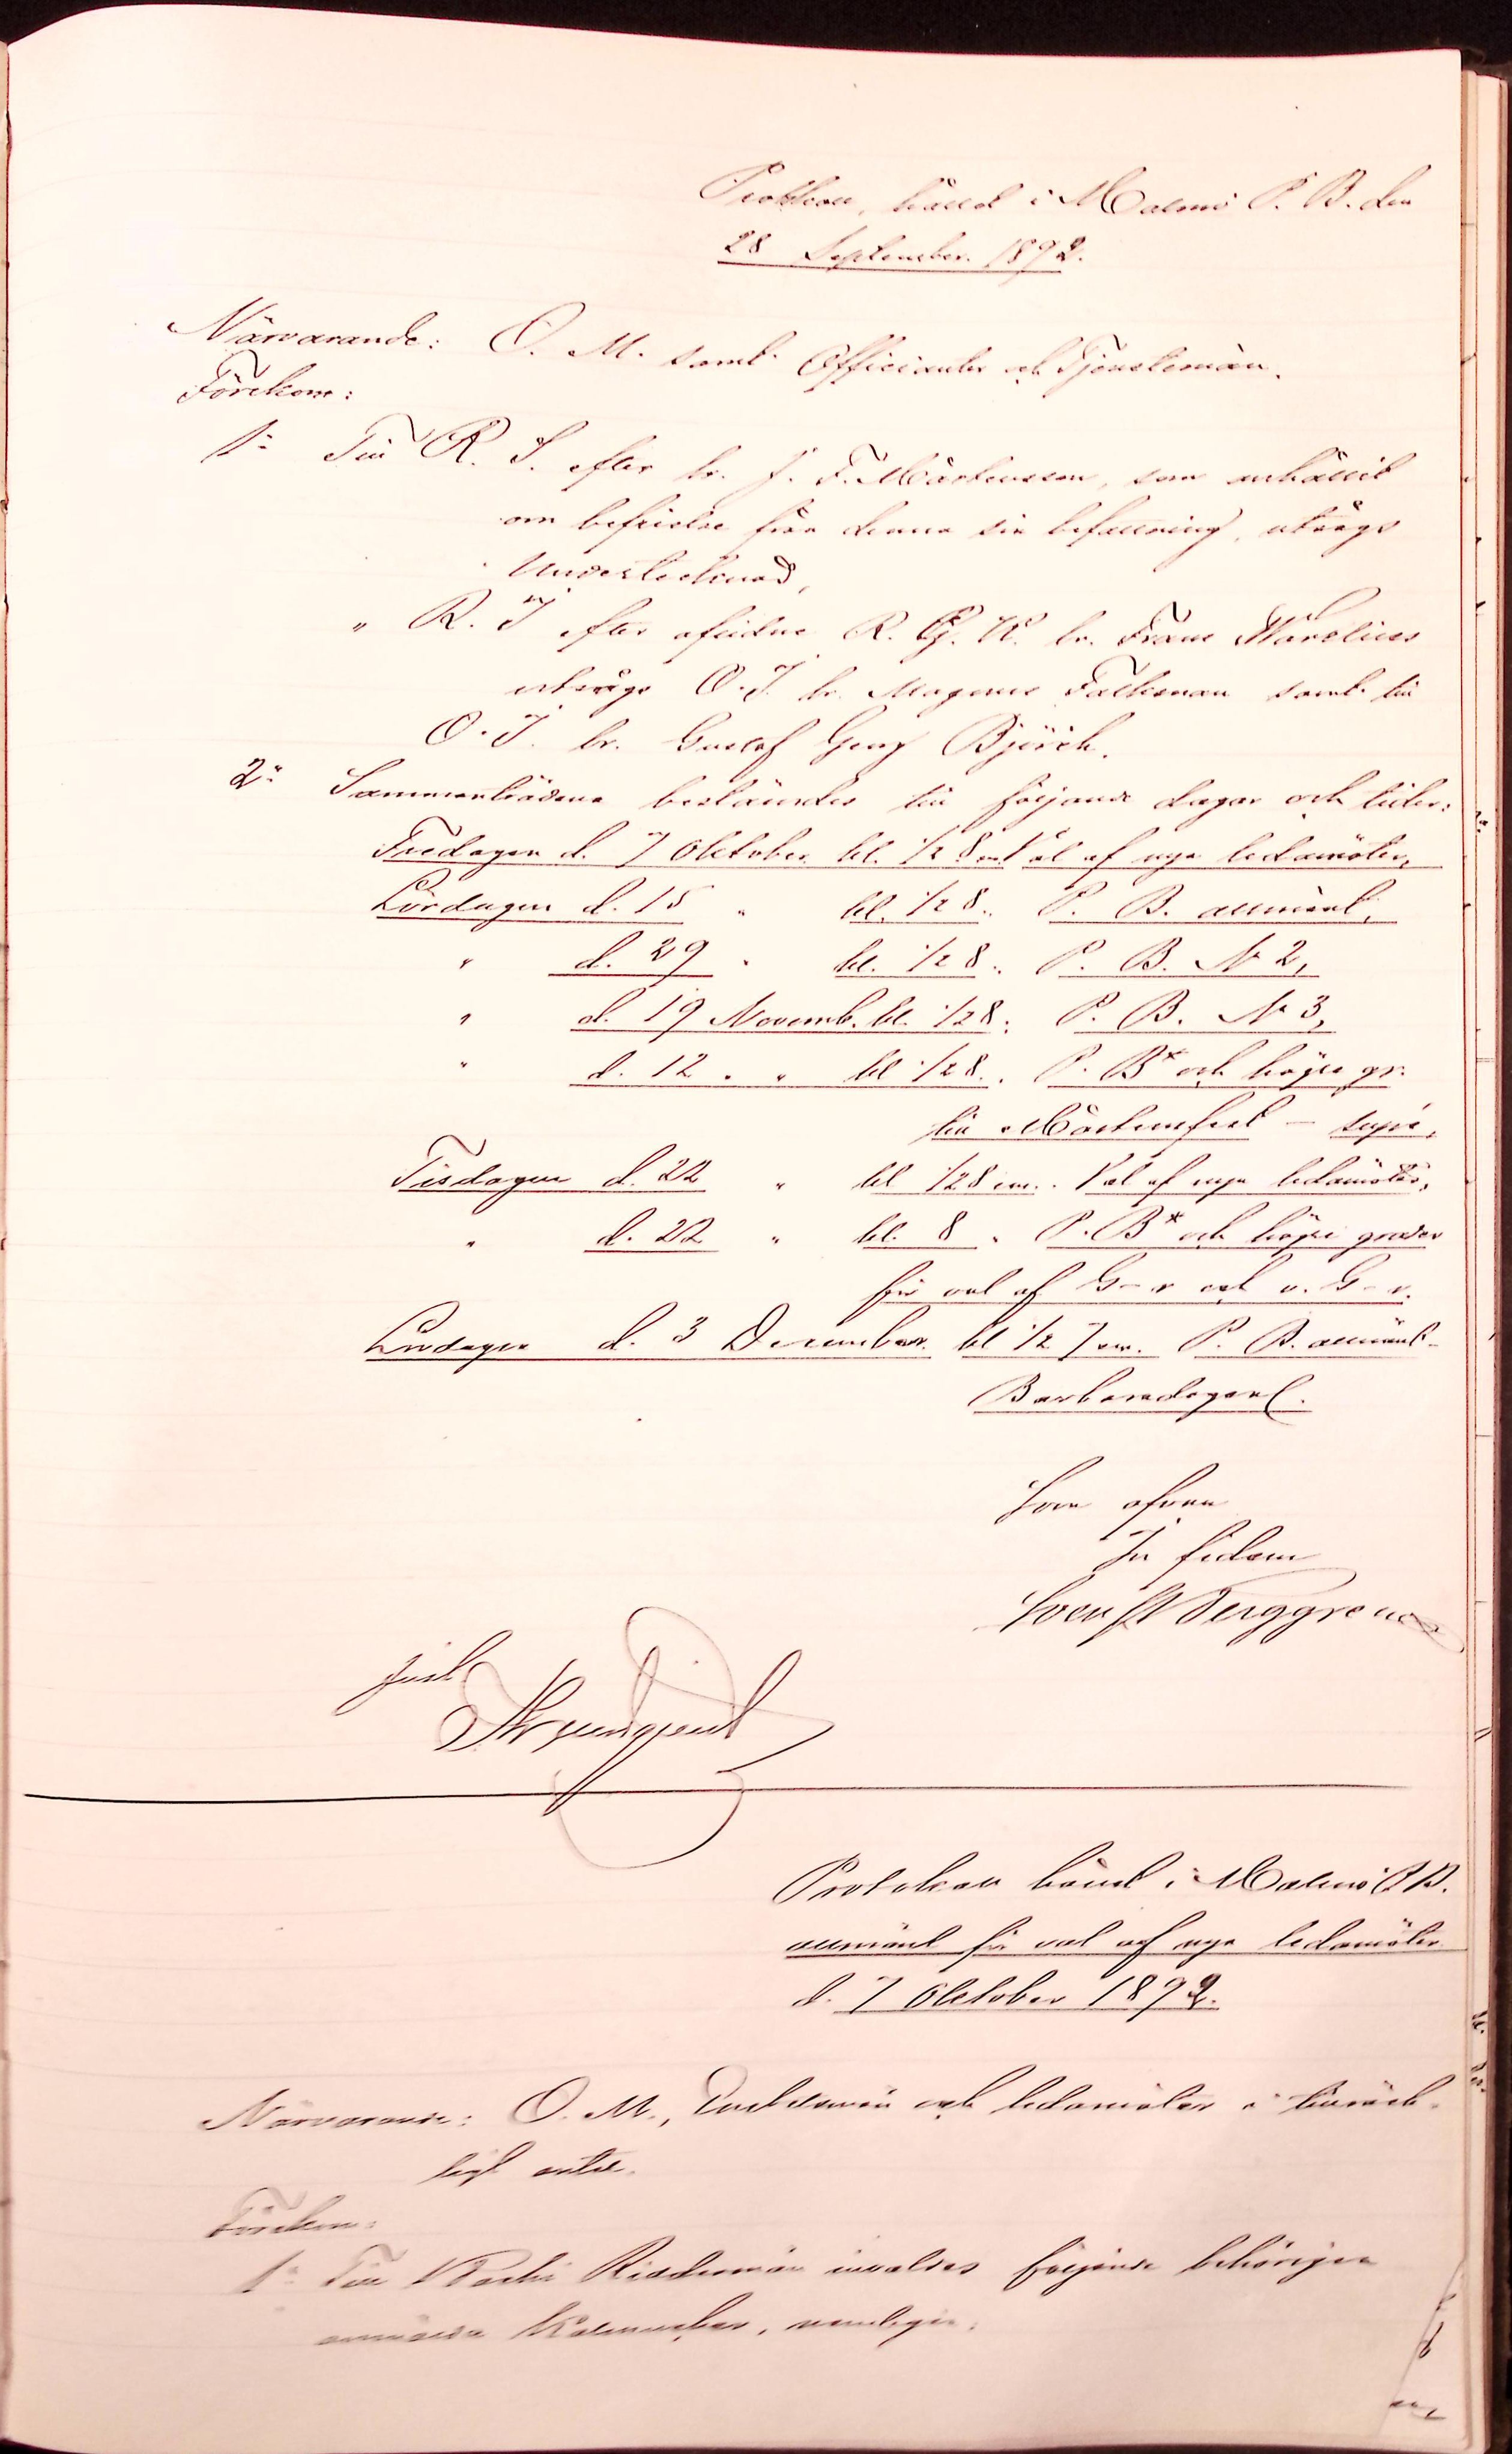 Protokoll, hållet i Malmö P. B. den
28 September 1892.
Närvarande: O. M. samt Officianter och Tjenstemän.
Förekom:
1º Till R. S. efter br. J. F. Mårtensson, som anhållit
om befrielse från denna sin befattning, utsågs
Undertecknad,
" R. I efter aflidne R. G. K. br. Frans
utsågs O. I. br. Magnus Falkman samt till
O. I. br. Gustaf Georg Björck.
2º Sammanträdena bestämdes till följande dagar och tider:
Fredagen d. 7 Oktober kl. 1/2 8 em Val af nya ledamöter,
Lördagen d. 15 " kl. 1/2 8 " P. B. allmänt,
" d. 29 " kl. 1/2 8 " P. B. No 2,
" d. 19 Novemb. kl. 1/2 8 " P. B. No 3,
" d. 12 " " kl 1/2 8 " P. B* och högre gr.
till Mårtensfest – supé,
Tisdagen d. 22 " kl 1/2 8 em. Val af nya ledamöter,
" d. 22 " kl. 8 " P. B* och högre grader
för val af G–r och v. G–r.
Lördagen d. 3 December kl 1/2 7 em. P. B. allmänt
Barbaradagen.
Som ofvan
In fidem
Sven Berggren
Just.
Protokoll hållet i Malmö P. B.
allmänt för val af nya ledamöter
d. 7 Oktober 1892.
Närvarande: O. M., Embetsmän och ledamöter i tillräck-
ligt antal.
Förekom:
1º Till Riddersmän invaldes följande behörigen
anmälda Kamrater, nemligen: